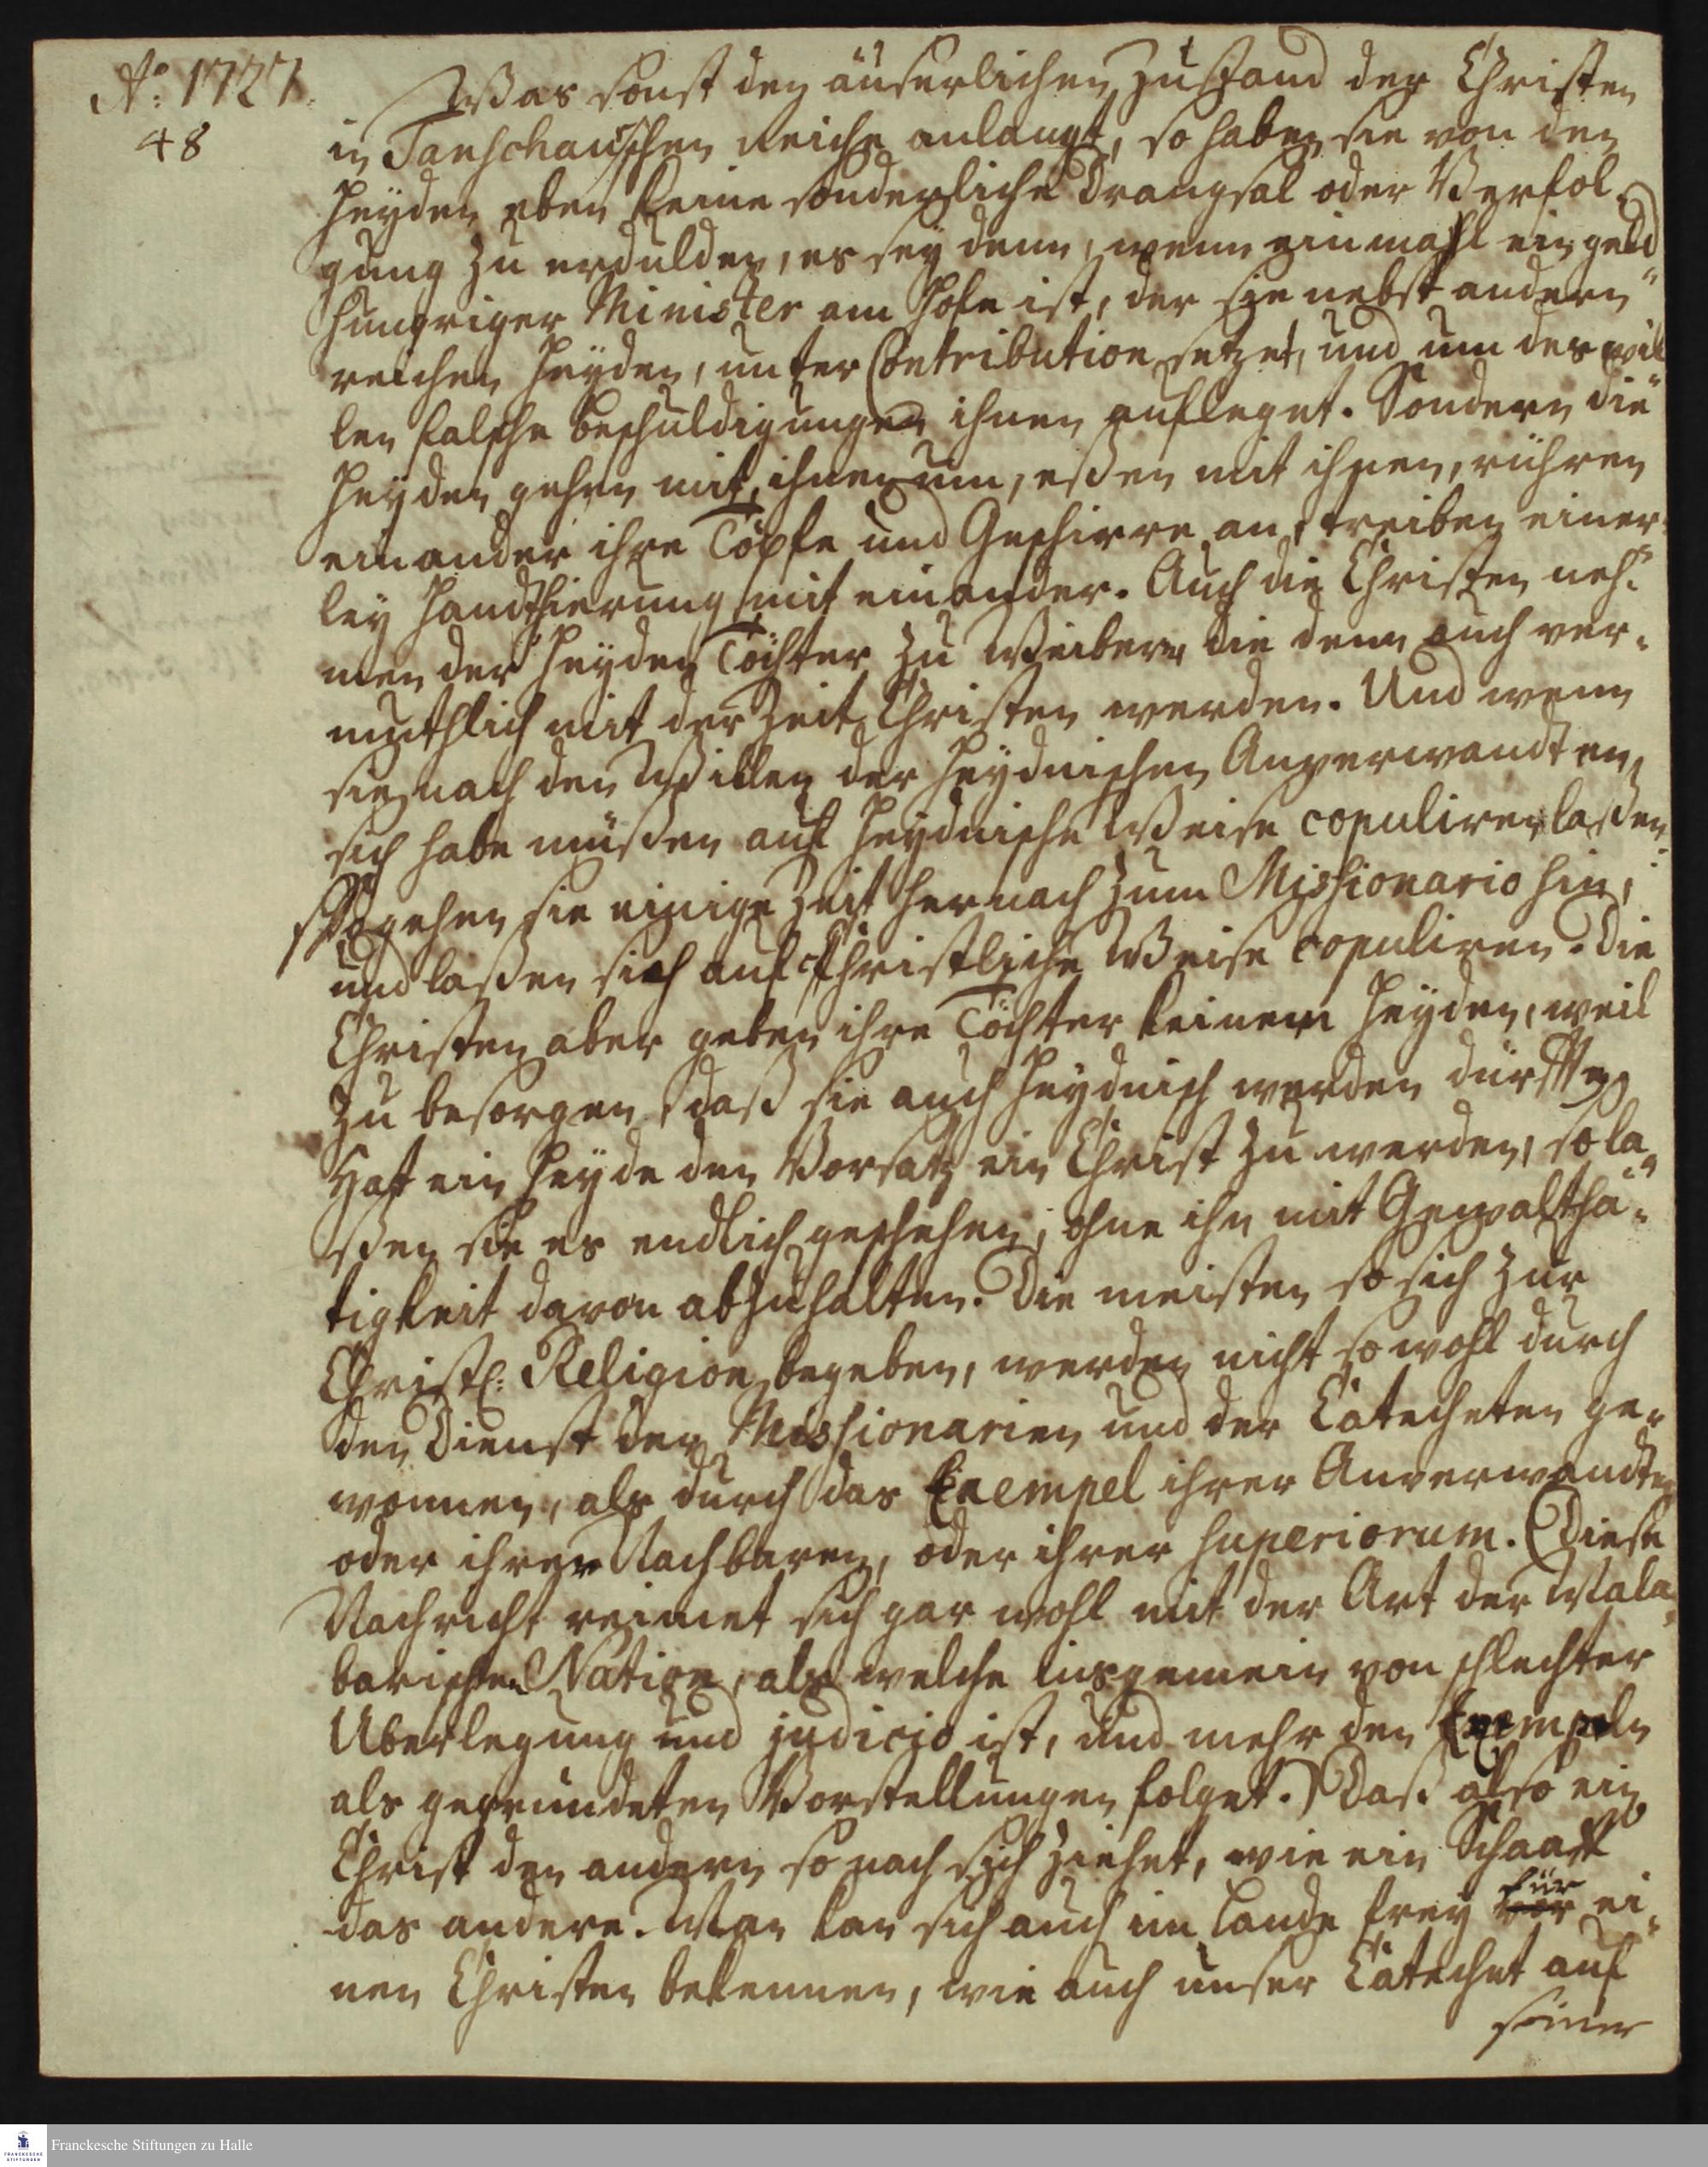 Aº: 1727.
48
Was sonst den äuserlichen Zustand der Christen
in Tanschauischen Reiche anlangt, so haben sie von den
Heyden eben keine sonderliche Drangsal oder Verfol-
gung zu erdulden, es sey denn, wenn einmahl ein geld
hungriger Minister am Hofe ist, der sie nebst andern
reichen Heyden, unter Contribution setzet, und um des wil
len falsche Beschuldigungen ihnen aufleget. Sondern die
Heyden gehen mit ihnen um, eßen mit ihnen, rühren
einander ihre Töpfe und Geschirre an, treiben einer-
ley Handthierung mit einander. Auch die Christen neh-
men der Heyden Töchter zu Weibern die denn auch ver-
muthlich mit der Zeit Christen werden. Und wenn
sie nach den Willen der Heydnischen Anverwandten,
sich habe müßen auf Heydnische Weise copuliren laßen,
So gehen sie einige Zeit hernach zum Missionario hin,
und laßen sich auf Christliche Weise copuliren. Die
Christen aber geben ihre Töchter keinem Heyden, weil
zu besorgen, daß sie auch Heydnisch werden dürfften
Hat ein Heyde den Vorsatz ein Christ zu werden, so la-
ßen sie es endlich geschehen, ohne ihn mit Gewalthä-
tigkeit davon abzuhalten. Die meisten so sich zur
Christl: Religion begeben, werden nicht so wohl durch
den Dienst der Missionarien und der Catecheten ge-
wonnen, als durch das Exempel ihrer Anverwandten
oder ihrer Nachbaren, oder ihrer Superiorum. (Diese
Nachricht reimet sich gar wohl mit der Art der Mala-
barischen Nation, als welche insgemein von schlechter
Uberlegung und judicio ist, und mehr den Exempeln
als gegründeten Vorstellungen folget.) Daß also ein
Christ den andern so nach sich ziehet, wie ein Schaaff
das andere. Man kan sich auch im Lande frey vor für ei-
nen Christen bekennen, wie auch unser Catechet auf
seiner
Franckesche Stiftungen zu Halle
FRANCKESCHE STIFTUNGEN